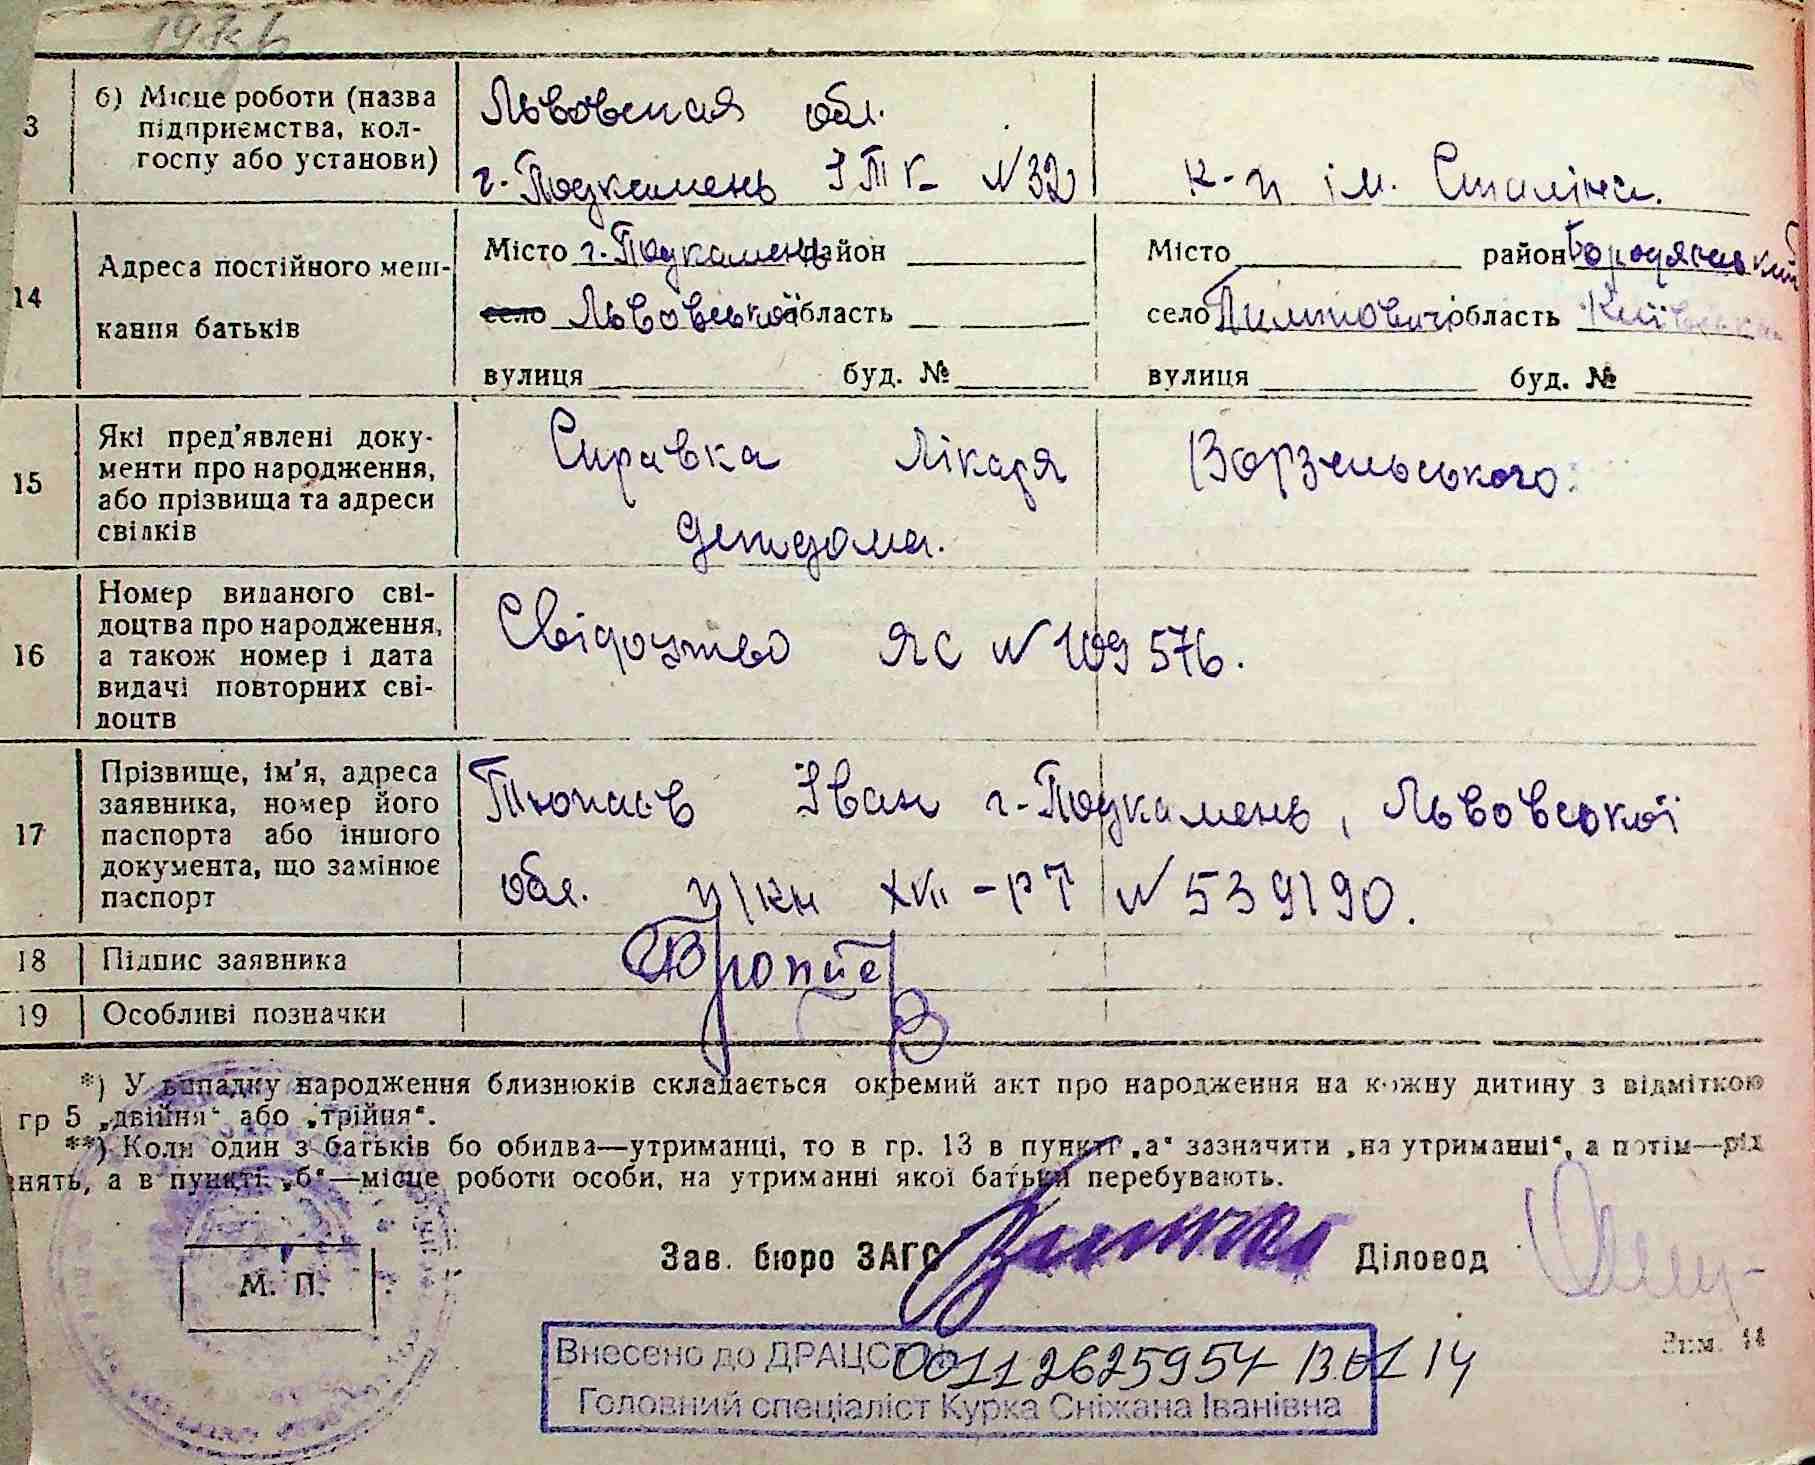 3 б) Місце роботи (назва підприємства, кол-госпу або установи)
Львовская обл.
г. Подкамень ІТК- N32
к-п ім. Сталіна.
14 Адреса постійного меш-
кання батьків
Місто г. Подкамень район Місто район Бородянський
село Львовської область село область Київська
вулиця буд. № вулиця буд. №
15 Які пред'явлені доку-
менти про народження,
або прізвища та адреси
свідків
Справка лікаря Ворзельського
детдома.
16 Номер виданого сві-
доцтва про народження,
а також номер і дата
видачі повторних сві-
доцтв
Свідоцтво ЯС N 109576.
17 Прізвище, ім'я, адреса
заявника, номер його
паспорта або іншого
документа, що замінює
паспорт
Тюпаєв Іван г. Подкамень, Львовської
обл. XVII-РТ N 539190.
18 Підпис заявника
19 Особливі позначки
*) У випадку народження близнюків складається окремий акт про народження на кожну дитину з відміткою
гр 5 „двійня“ або „трійня“.
**) Коли один з батьків бо обидва—утриманці, то в гр. 13 в пункті „а“ зазначити „на утриманні“, а потім—ріх
нять, а в пункті „б“—місце роботи особи, на утриманні якої батьки перебувають.
Зав. бюро ЗАГС Діловод
М. П.
Зим. 44
Внесено до ДРАЦСГ 00112625954 13.01 14
Головний спеціаліст Курка Сніжана Іванівна